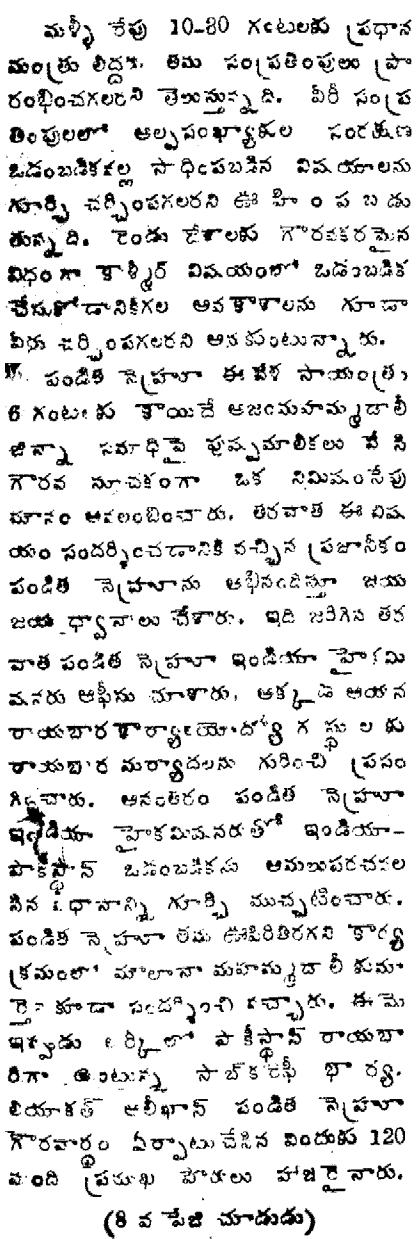 మళ్ళీ రేపు 10-30 గంటలకు ప్రధాన
మంత్రు లిద్దరు తమ సంప్రతింపులు ప్రా
రంభించగలరని తెలుస్తున్నది. వీరీ సంప్ర
తింపులలో అల్పసంఖ్యాకుల సంరక్షణ
ఒడంబడికవల్ల సాధింపబడిన విషయాలను
గూర్చి చర్చింపగలరని ఊ హిం ప బ డు
తున్నది. రెండు దేశాలకు గౌరవకరమైన
విధంగా కాశ్మీర్ విషయంలో ఒడంబడిక
చేసుకోడానికిగల అవకాశాలను గూడా
వీరు చర్చింపగలరని అనుకుంటున్నారు.
పండిత నెహ్రూ ఈవేళ సాయంత్రం
6 గంటలకు కాయిదే అజంమహమ్మదాలీ
జిన్నా సమాధిపై పుష్పమాలికలు వే సి
గౌరవ సూచకంగా ఒక నిమిషంసేపు
మౌనం అవలంబించారు. తరవాత ఈ విష
యం సందర్శించడానికి వచ్చిన ప్రజానీకం
పండిత నెహ్రూను అభినందిస్తూ జయ
జయ ధ్వానాలు చేశారు. ఇది జరిగిన తర
వాత పండిత నెహ్రూ ఇండియా హైకమి
షనరు ఆఫీసు చూశారు. అక్కడ ఆయన
రాయబార కార్యాలయోద్యో గ స్థు ల కు
రాయబార మర్యాదలను గురించి ప్రసం
గించారు. అనంతరం పండిత నెహ్రూ
ఇండియా హైకమిషనరుతో ఇండియా-
పాకిస్థాన్ ఒడంబడికను అమలుపరచవల
సిన విధానాన్ని గూర్చి ముచ్చటించారు.
పండిత నెహ్రూ తమ ఊపిరితిరగని కార్య
క్రమంలో మౌలానా మహమ్మదాలీ కుమా
ర్తెను కూడా సందర్శించి వచ్చారు. ఈమె
ఇప్పుడు టర్కీలో పాకిస్థాన్ రాయబా
రిగా ఉంటున్న భార్య.
లియాకత్ అలీఖాన్ పండిత నెహ్రూ
గౌరవార్థం ఏర్పాటుచేసిన విందుకు 120
మంది ప్రముఖ పౌరులు హాజరైనారు.
(8 వ పేజి చూడుడు)